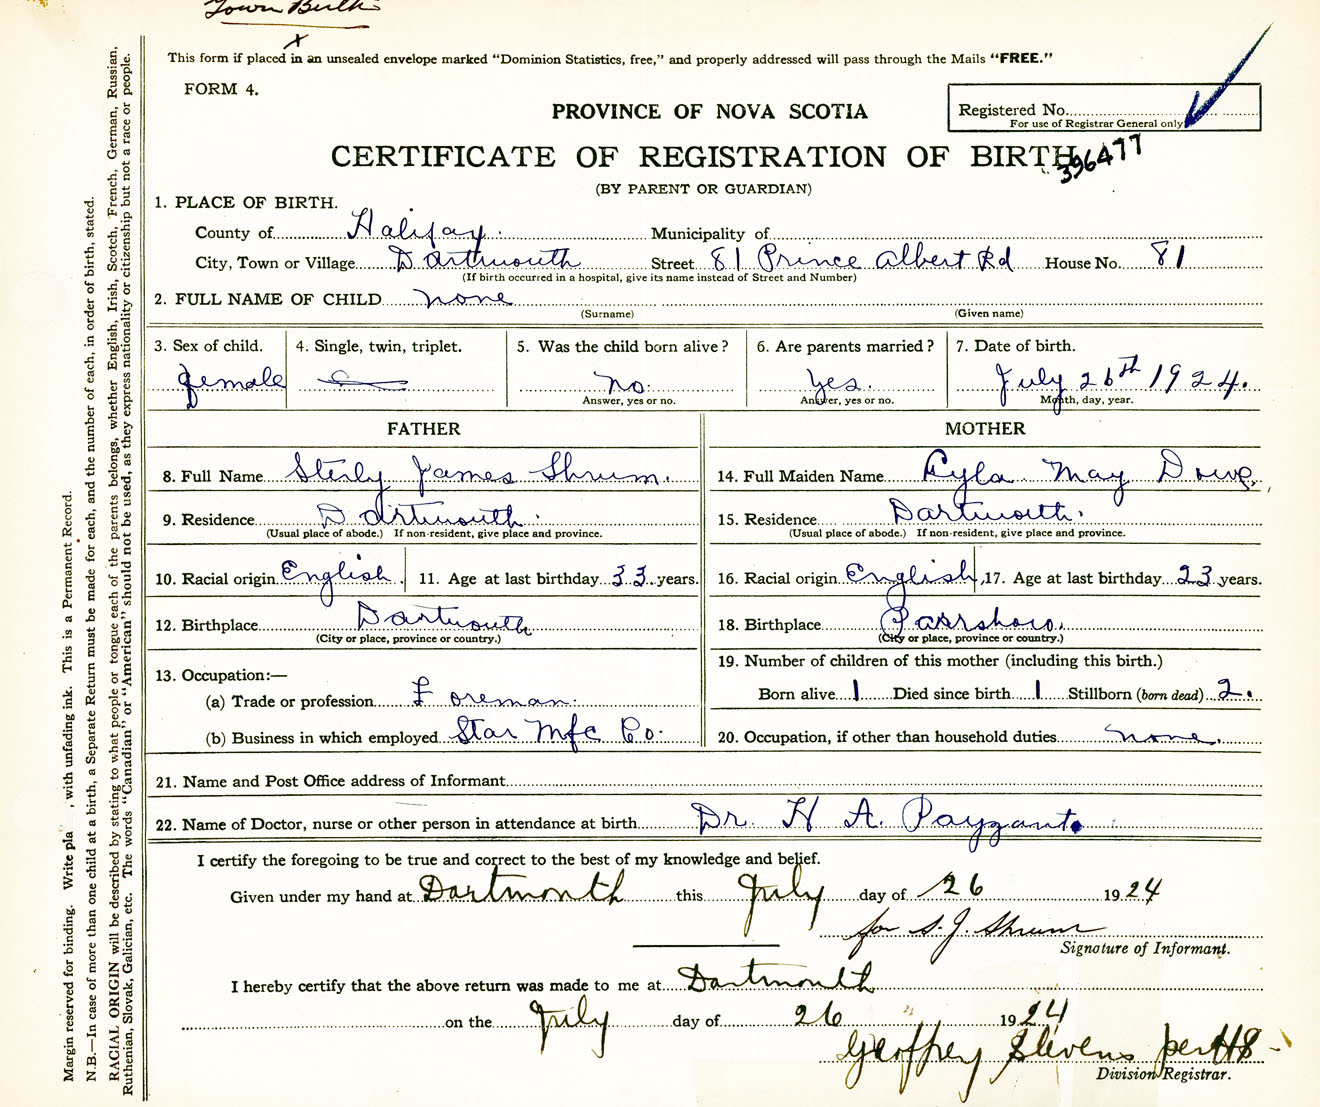 Town Birth
x
This form if placed in an unsealed envelope marked “Dominion Statistics, free,” and properly addressed will pass through the Mails “FREE.”
FORM 4.
PROVINCE OF NOVA SCOTIA
Registered No.
For use of Registrar General only
CERTIFICATE OF REGISTRATION OF BIRTH
396477
(BY PARENT OR GUARDIAN)
1. PLACE OF BIRTH.
County of Halifax. Municipality of
City, Town or Village Dartmouth Street 81 Prince Albert Rd House No. 81
(If birth occurred in a hospital, give its name instead of Street and Number)
2. FULL NAME OF CHILD none
(Surname) (Given name)
3. Sex of child. 4. Single, twin, triplet. 5. Was the child born alive? 6. Are parents married? 7. Date of birth.
female no. yes. July 26th 1924.
Answer, yes or no. Answer, yes or no. Month, day, year.
FATHER MOTHER
8. Full Name Sterly James Shrum. 14. Full Maiden Name Lyla May Dowe.
9. Residence Dartmouth. 15. Residence Dartmouth.
(Usual place of abode.) If non-resident, give place and province. (Usual place of abode.) If non-resident, give place and province.
10. Racial origin English. 11. Age at last birthday 33 years. 16. Racial origin English, 17. Age at last birthday 23 years.
12. Birthplace Dartmouth 18. Birthplace Parrsboro.
(City or place, province or country.) (City or place, province or country.)
13. Occupation:— 19. Number of children of this mother (including this birth.)
(a) Trade or profession Foreman. Born alive 1 Died since birth 1 Stillborn (born dead) 2.
(b) Business in which employed Star Mfc Co. 20. Occupation, if other than household duties none.
21. Name and Post Office address of Informant
22. Name of Doctor, nurse or other person in attendance at birth Dr. H A. Payzant.
I certify the foregoing to be true and correct to the best of my knowledge and belief.
Given under my hand at Dartmouth this July day of 26 1924
for S. J. Shrum
Signature of Informant.
I hereby certify that the above return was made to me at Dartmouth
on the July day of 26 " 1924
Geoffrey Stevens per HS
Division Registrar.
Margin reserved for binding. Write pla , with unfading ink. This is a Permanent Record.
N.B.—In case of more than one child at a birth, a Separate Return must be made for each, and the number of each, in order of birth, stated.
RACIAL ORIGIN will be described by stating to what people or tongue each of the parents belongs, whether English, Irish, Scotch, French, German, Russian,
Ruthenian, Slovak, Galician, etc. The words “Canadian” or “American” should not be used, as they express nationality or citizenship but not a race or people.